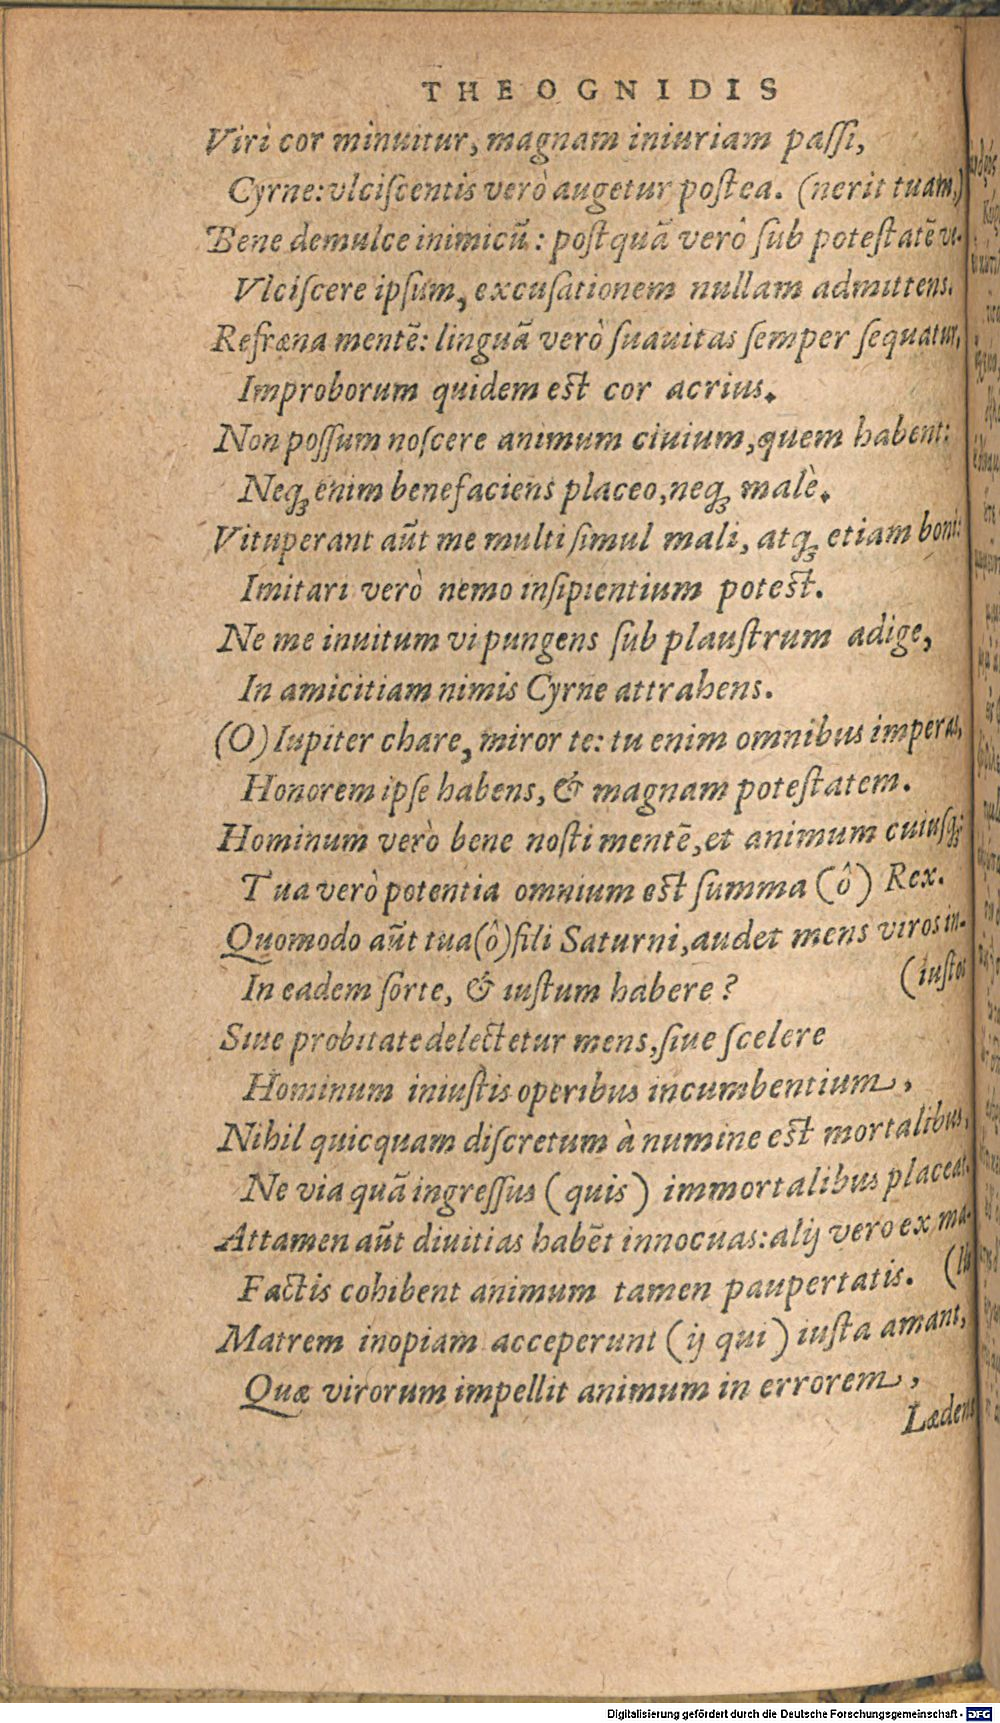 THEOGNIDIS
Viri cor minuitur, magnam iniuriam passi,
Cyrne: vlciscentis verò augetur postea. (nerit tuam,)
Bene demulce inimicũ: postquã verò sub potestatẽ ve-
Vlciscere ipsum, excusationem nullam admittens.
Refræna mentẽ: linguã verò suauitas semper sequatur,
Improborum quidem est cor acrius.
Non possum noscere animum ciuium, quem habent:
Neq; enim benefaciens placeo, neq; malè.
Vituperant aũt me multi simul mali, atq; etiam boni:
Imitari verò nemo insipientium potest.
Ne me inuitum vi pungens sub plaustrum adige,
In amicitiam nimis Cyrne attrahens.
(O) Iupiter chare, miror te: tu enim omnibus imperas,
Honorem ipse habens, & magnam potestatem.
Hominum verò bene nosti mentẽ, et animum cuiusq;
Tua verò potentia omnium est summa (ô) Rex.
Quomodo aũt tua (ô) fili Saturni, audet mens viros in-
In eadem sorte, & iustum habere? (iustos
Siue probitate delectetur mens, siue scelere
Hominum iniustis operibus incumbentium,
Nihil quicquam discretum à numine est mortalibus,
Ne via quã ingressus (quis) immortalibus placeat.
Attamen aũt diuitias habẽt innocuas: alij vero ex ma-
Factis cohibent animum tamen paupertatis. (lis
Matrem inopiam acceperunt (ij qui) iusta amant,
Quæ virorum impellit animum in errorem,
Lædens
Digitalisierung gefördert durch die Deutsche Forschungsgemeinschaft - DFG